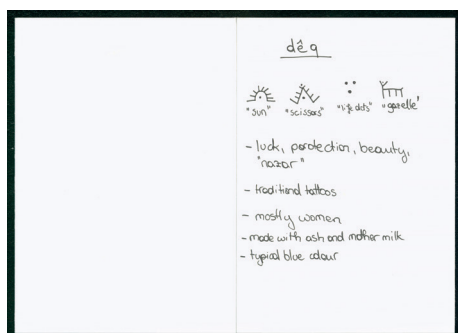 dêq
"sun" "scissors" "life dots" "gazelle"
- luck, protection, beauty,
"nazar"
- traditional tattoos
- mostly women
- made with ash and mother milk
- typical blue colour